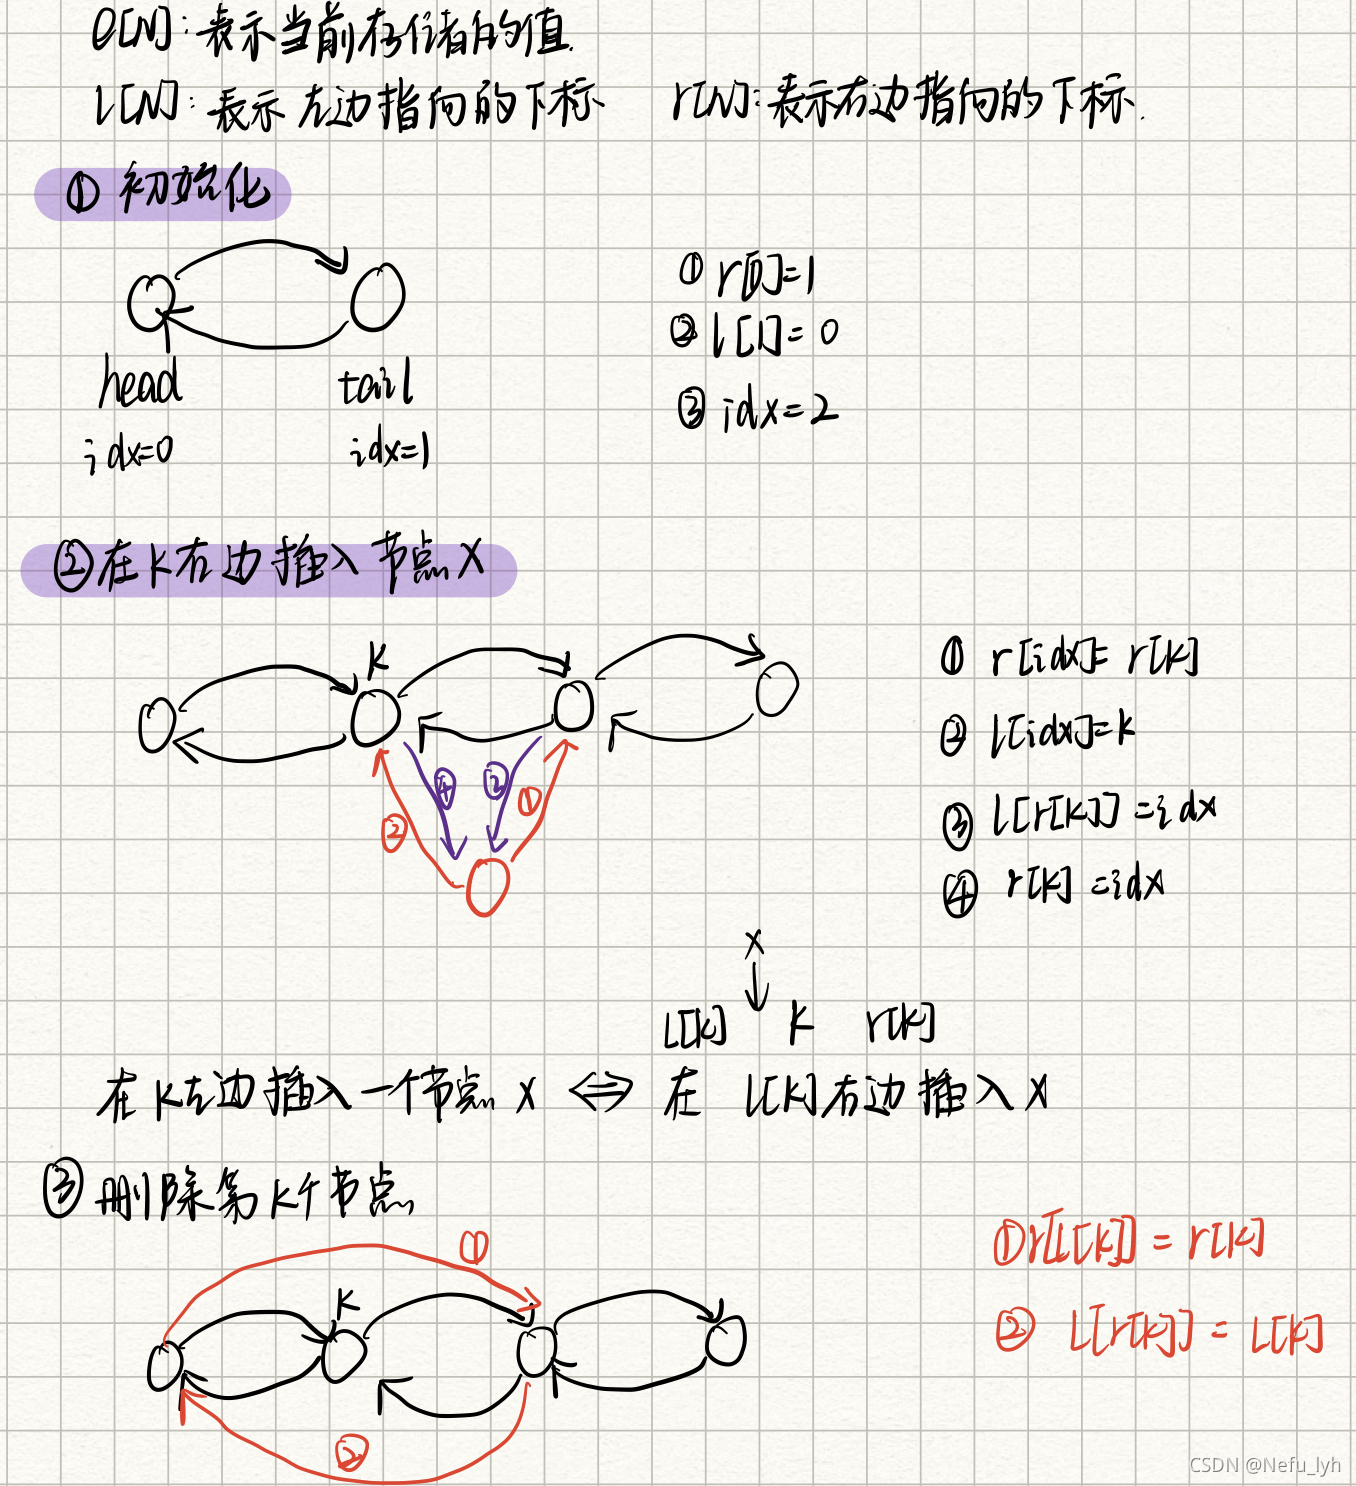 e[N]:表示当前存储的值.
l[N]:表示左边指向的下标 r[N]:表示右边指向的下标.
① 初始化
① r[0]=1
② l[1]=0
head tail
③ idx=2
idx=0 idx=1
②在k右边插入节点X
K
① r[idx]=r[k]
② l[idx]=k
④ ② ①
②
③ l[r[k]]=idx
④ r[k]=idx
x
l[k] K r[k]
在K左边插入一个节点x ⇔ 在 l[k]右边插入x
③ 删除第K个节点
①
①r[l[k]]=r[k]
K
② l[r[k]]=l[k]
②
CSDN @Nefu_lyh